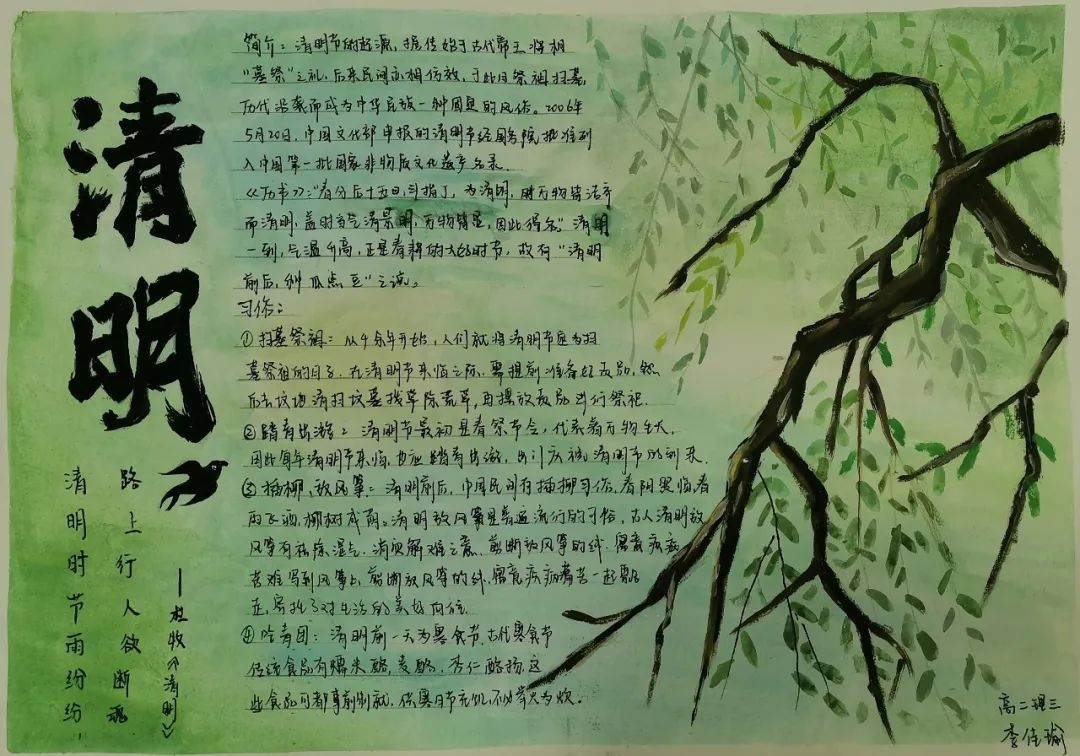 清明
清明时节雨纷纷，
路上行人欲断魂
——杜牧《清明》
简介：清明节的起源，据传始于古代帝王将相
“墓祭”之礼，后来民间亦相仿效，于此日祭祖扫墓，
历代沿袭而成为中华民族一种固定的风俗。2006年
5月20日，中国文化部申报的清明节经国务院批准列
入中国第一批国家非物质文化遗产名录。
《历书》：“春分后十五日，斗指丁，为清明，时万物皆洁齐
而清明，盖时当气清景明，万物皆显，因此得名”清明
一到，气温升高，正是春耕的大好时节，故有“清明
前后，种瓜点豆”之说。
习俗：
①扫墓祭祖：从千年开始，人们就将清明节定为扫
墓祭祖的日子，在清明节来临之际，要提前准备好
后去坟地清扫坟墓找草除荒草，再摆放 进行祭祀.
②踏青出游：清明节最初是春祭节令，代表着万物生长，
因此每年清明节来临，也应踏青出游，出门庆祝清明节的到来.
③插柳、放风筝：清明前后，中国民间有插柳习俗，春阴累临，春
雨飞洒，柳树成荫。清明放风筝是普遍流行的习俗，古人清明放
风筝有祛除湿气、消灾解难之意、剪断放风筝的线，寓意疾病
苦难写到风筝上，剪断放风筝的线，寓意疾病苦一起
走，寄托了对生活的美好向往.
④吃青团：清明前一天为寒食节，古代寒食节
传统食品有糯米酪、麦酪、杏仁酪
些食品可都事前制就，供寒日节充饥，不必举火为炊.
高二理三
李佳瑜